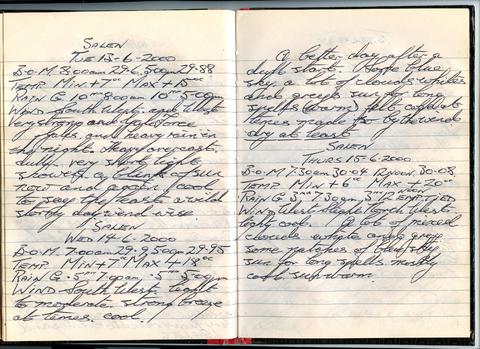 SALEN
TUE 13-6-2000
B.O.M. 8.00am 29.6. 5.00pm 29.88
TEMP. MIN +7°C MAX +15°C
RAIN G 10mm 8.00am 10mm 5.00pm
WIND South West and West
very strong and gale force
gales and heavy rain in
the night. Heavy overcast
dull, very short light
showers, a blink of sun
now and again. cool
to say the least a wild
stormy day wind wise.
SALEN
WED 14-6-2000
B.O.M. 7.00am 29.9 5.50pm 29.95
TEMP. MIN +7°C MAX +18°C
RAIN G. 5mm 7.00am. 5mm 5.00pm
WIND South West light
to moderate strong breeze
at times. cool.
A better day after a
dull start. More blue
sky, a lot of clouds white
and grey sun for long
spells (warm) felt cold at
times made so by the wind
dry at least
SALEN
THURS 15-6-2000
B.O.M. 7.30am 30.04 12 NOON 30.08
TEMP. MIN +6°C MAX +20°C
RAIN G 5mm 7.30am, 5mm 12 NOON
WIND West North West
cool. A lot of mixed
clouds white and grey
some patches of blue sky
sun for long spells mostly
cool. sun warm.